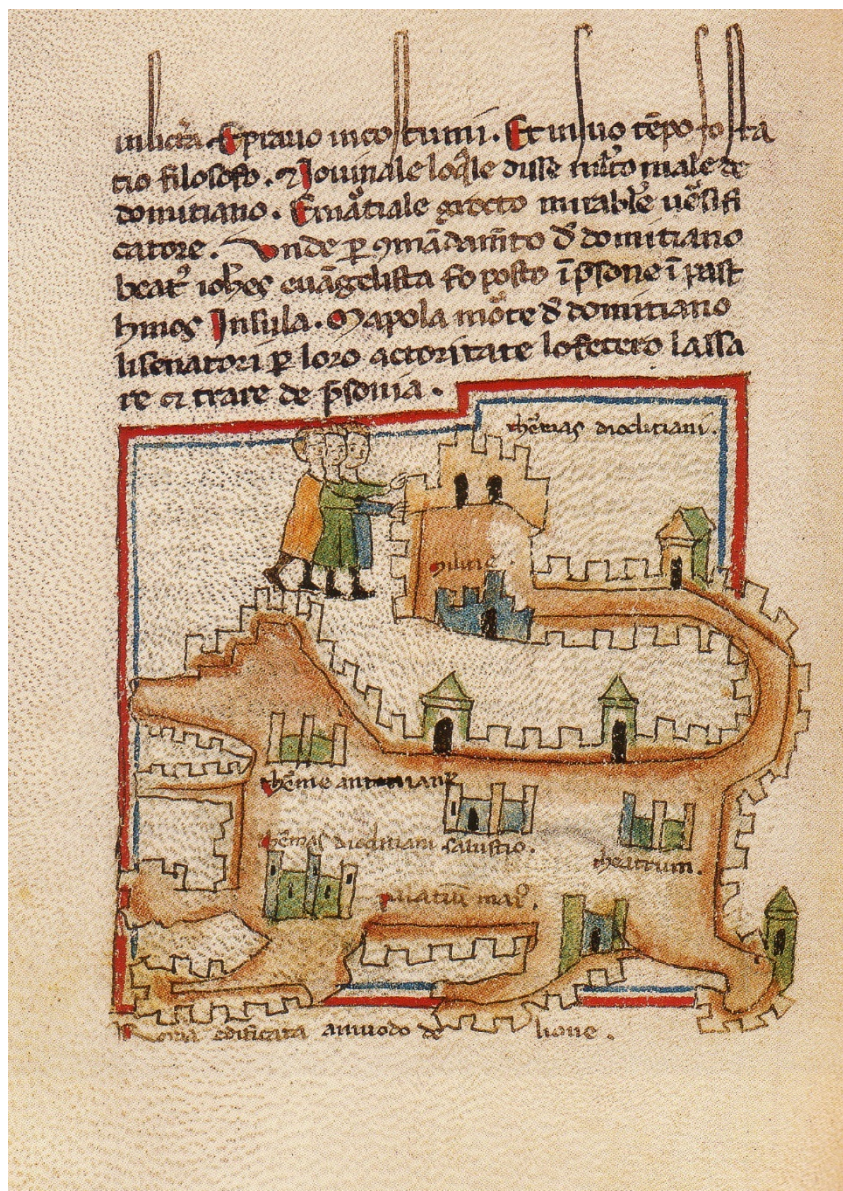 in lictᷓa. E prauo in costumi. Et in suo tēpo fo sta
tio filosofo. ⁊ Jouinale loq̄le disse ml̄to male de
domitiano. E mar̄tiale grecto mirabl̄e uersifi
catore. Onde ꝑ ꝯmādam̄to d̄ domitiano
beat᷒ ioh̄es euāgelista fo posto ī p̄sone ī past
hmos Insula. Mapola mor̄te d̄ domitiano
li senatori ꝑ loro actoritate lo fecero lassa
re ⁊ trare de p̄sonia.
th̄mas dioclitiani.
th̄me
th̄mas dioclitiani salustio.
theatrum.
palatiū mai᷒.
Roma edificata ammodo de lione.